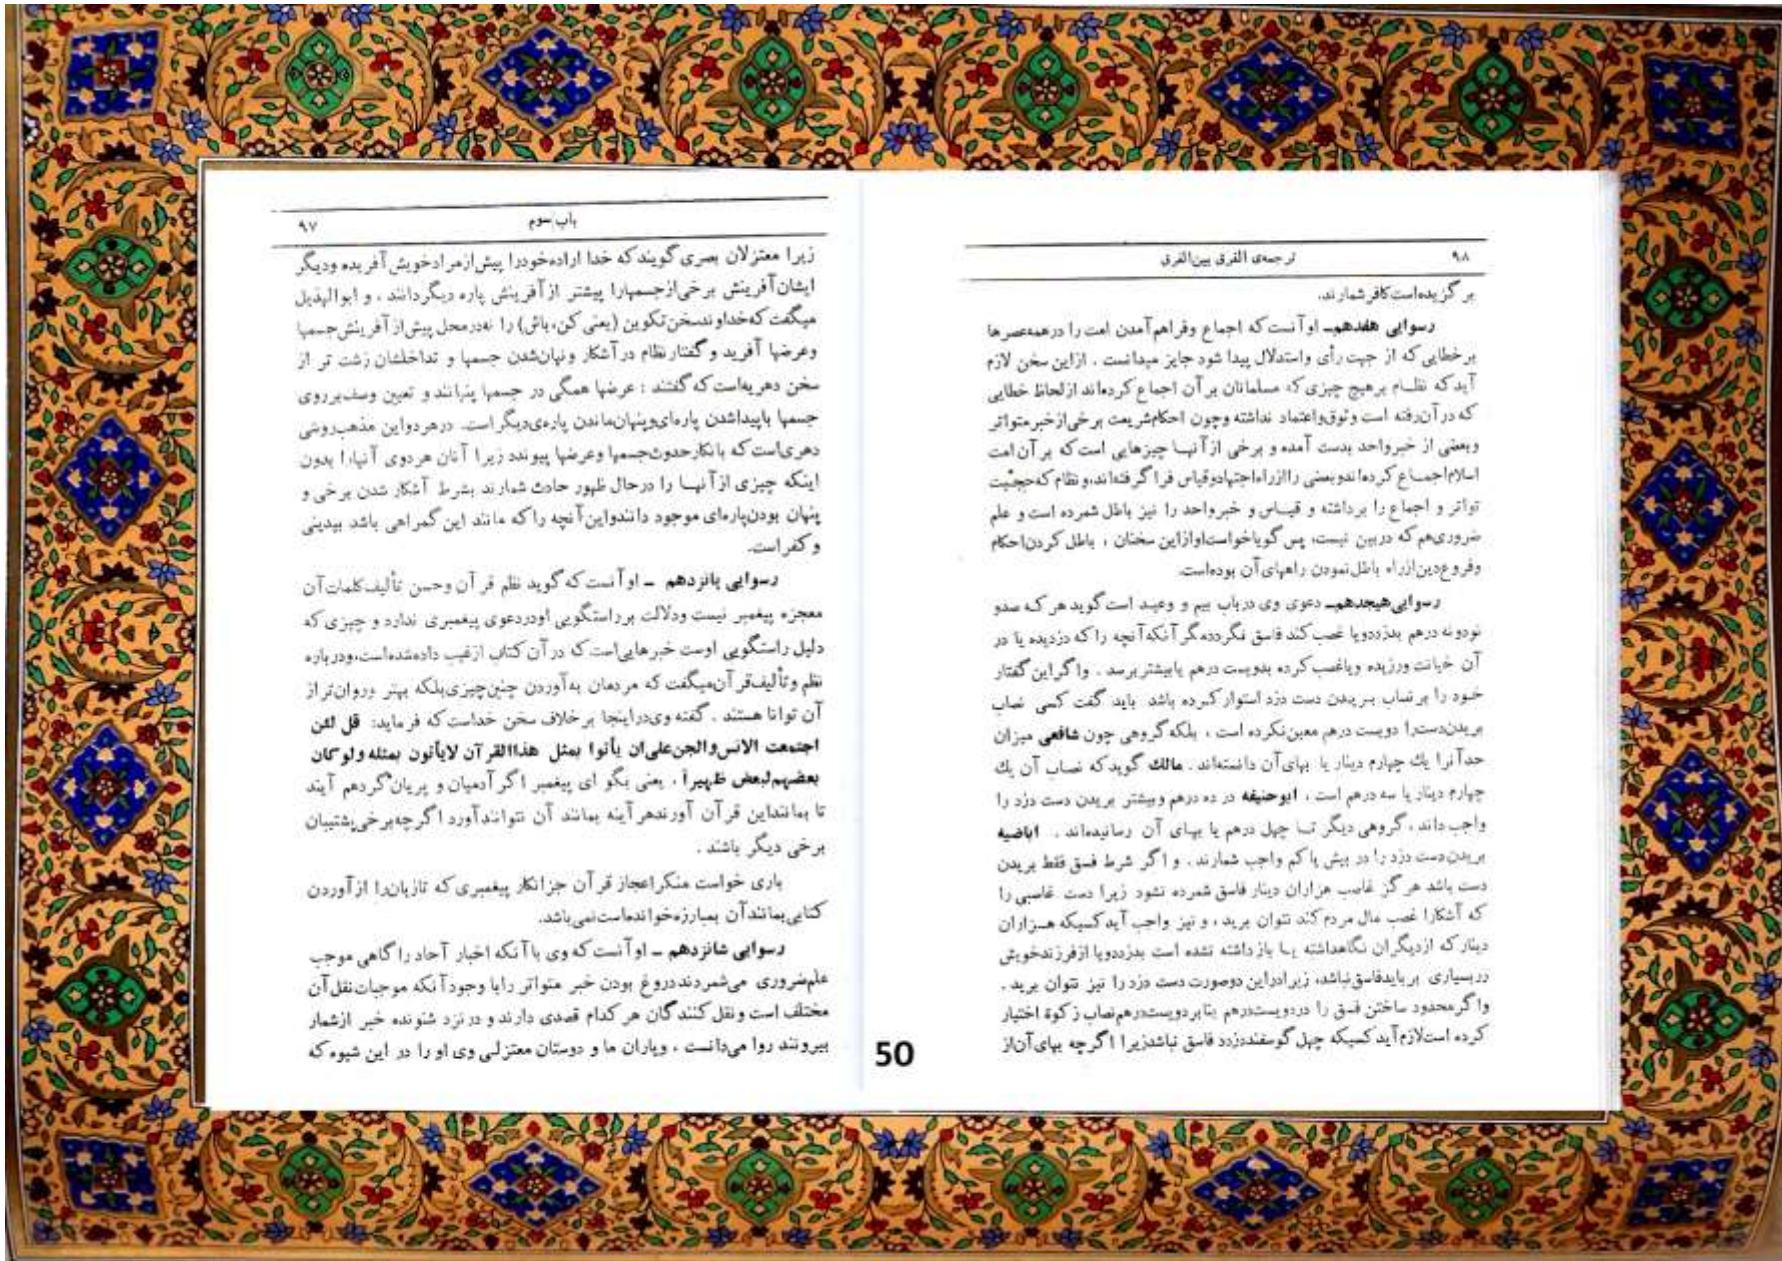 باب سوم ۹۷
زیرا معتزلان بصری گویند که خدا اراده خود را پیش از مراد خویش آفریده و دیگر
ایشان آفرینش برخی از جسمها را پیشتر از آفرینش پاره دیگر دانند ، و ابوالهذیل
میگفت که خداوند سخن تکوین (یعنی کن، باش) را نه در محل پیش از آفرینش جسمها
وعرضها آفرید و گفتار نظام در آشکار و نهان شدن جسمها و تداخلشان زشت تر از
سخن دهریه است که گفتند : عرضها همگی در جسمها پنهانند و تعیین وصف بر روی
جسمها با پیدا شدن پاره‌ای و پنهان ماندن پاره‌ی دیگر است. در هر دو این مذهب روشی
دهری است که بانکار حدوث جسمها وعرضها پیوندد زیرا آنان هر دوی آنها را بدون
اینکه چیزی از آنهـا را درحال ظهور حادث شمارند بشرط آشکار شدن برخی و
پنهان بودن پاره‌ای موجود دانند و این آنچه را که مانند این گمراهی باشد بیدینی
و کفر است.
رسوایی پانزدهم ـ او آنست که گوید نظم قرآن وحسن تألیف کلمات آن
معجزه پیغمبر نیست ودلالت بر راستگویی او در دعوی پیغمبری ندارد و چیزی که
دلیل راستگویی اوست خبرهایی است که در آن کتاب از غیب داده شده است، و درباره
نظم و تألیف قرآن میگفت که مردمان به آوردن چنین چیزی بلکه بهتر و روان تر از
آن توانا هستند . گفته وی در اینجا بر خلاف سخن خداست که فرماید: قل لئن
اجتمعت الانس والجن علی ان یأتوا بمثل هذا القرآن لایأتون بمثله ولو کان
بعضهم لبعض ظهیرا ، یعنی بگو ای پیغمبر اگر آدمیان و پریان گرد هم آیند
تا بمانند این قرآن آورند هر آینه بمانند آن نتوانند آورد اگر چه برخی پشتیبان
برخی دیگر باشند .
باری خواست منکر اعجاز قرآن جز انکار پیغمبری که تازیان را از آوردن
کتابی بمانند آن بمبارزه خوانده است نمی باشد.
رسوایی شانزدهم ـ او آنست که وی با آنکه اخبار آحاد را گاهی موجب
علم ضروری می‌شمردند دروغ بودن خبر متواتر را با وجود آنکه موجبات نقل آن
مختلف است و نقل کنندگان هر کدام قصدی دارند و در نزد شنونده خبر از شمار
بیرونند روا می‌دانست ، ویاران ما و دوستان معتزلی وی او را در این شیوه که
۹۸ ترجمه‌ی الفرق بین الفرق
بر گزیده است کافر شمارند.
رسوایی هفدهم ـ او آنست که اجماع وفراهم آمدن امت را در همه عصرها
بر خطایی که از جهت رأی واستدلال پیدا شود جایز میدانست . از این سخن لازم
آید که نظـام بر هیچ چیزی که مسلمانان بر آن اجماع کرده‌اند از لحاظ خطایی
که در آن رفته است وثوق و اعتماد نداشته و چون احکام شریعت برخی از خبر متواتر
وبعضی از خبر واحد بدست آمده و برخی از آنهـا چیزهایی است که بر آن امت
اسلام اجمـاع کرده‌اند و بعضی را از راه اجتهاد و قیاس فرا گرفته‌اند، و نظام که حجیّت
تواتر و اجماع را برداشته و قیـاس و خبر واحد را نیز باطل شمرده است و علم
ضروری هم که در بین نیست، پس گویا خواست او از این سخنان ، باطل کردن احکام
وفروع دین از راه باطل نمودن راههای آن بوده است.
رسوایی هیجدهم ـ دعوی وی در باب بیم و وعیـد است گوید هر کـه صدو
نود و نه درهم بدزدد و یا غصب کند فاسق نگردد مگر آنکه آنچه را که دزدیده یا در
آن خیانت ورزیده ویا غصب کرده بدویست درهم یا بیشتر برسد . و اگر این گفتار
خـود را بر نصاب بـریدن دست دزد استوار کـرده باشد باید گفت کسی نصاب
بریدن دست را دویست درهم معین نکرده است ، بلکه گروهی چون شافعی میزان
حد آنرا یک چهارم دینار یا بهای آن دانسته‌اند . مالک گوید که نصاب آن یک
چهارم دینار یا سه درهم است ، ابوحنیفه در ده درهم وبیشتر بریدن دست دزد را
واجب داند ، گروهی دیگر تـا چهل درهم یا بهای آن رسانیده‌اند . اباضیه
بریدن دست دزد را در بیش یا کم واجب شمارند . و اگر شرط فسق فقط بریدن
دست باشد هرگز غاصب هزاران دینار فاسق شمرده نشود زیرا دست غاصبی را
که آشکارا غصب مال مردم کند نتوان برید ، و نیز واجب آید کسیکه هـزاران
دینار که از دیگران نگاهداشته یـا باز داشته نشده است بدزدد و یا از فرزند خویش
در بسیاری بر باید فاسق نباشد، زیرا در این دو صورت دست دزد را نیز نتوان برید .
و اگر محدود ساختن فسق را در دویست درهم بنابر دویست درهم نصاب زکوة اختیار
کرده است لازم آید کسیکه چهل گوسفند دزدد فاسق نباشد زیرا اگر چه بهای آن از
50